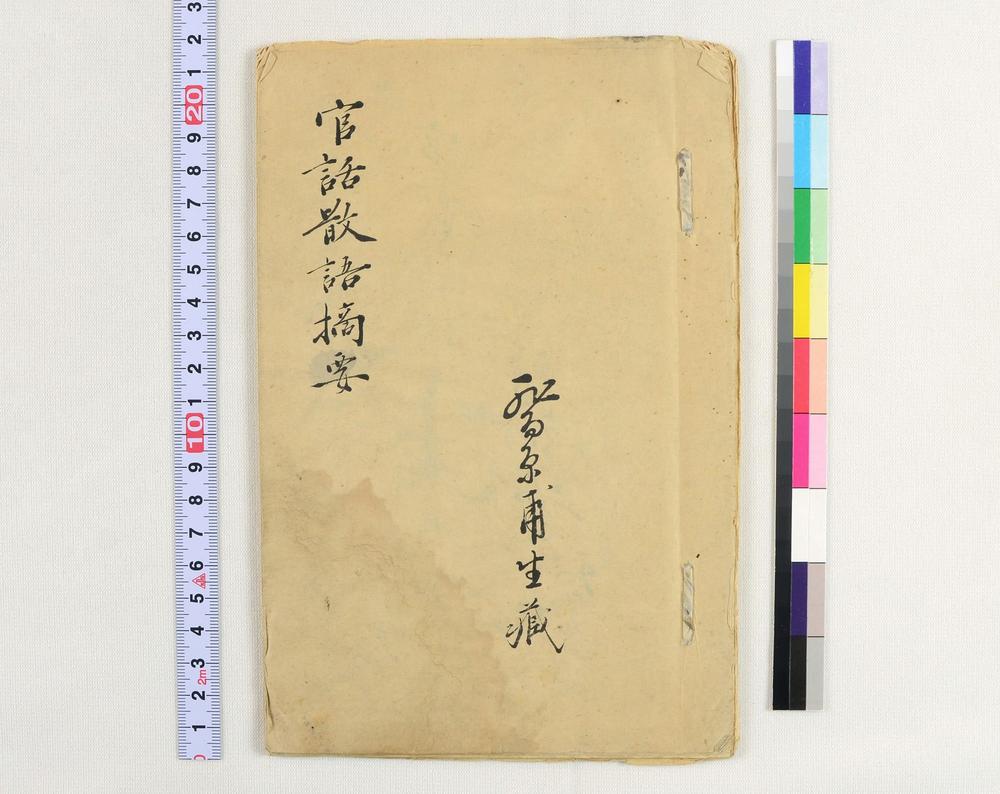 官話散語摘要
甫生藏
3 2 1 20 9 8 7 6 5 4 3 2 1 10 9 8 7 6 5 4 3 2m 2 1 0